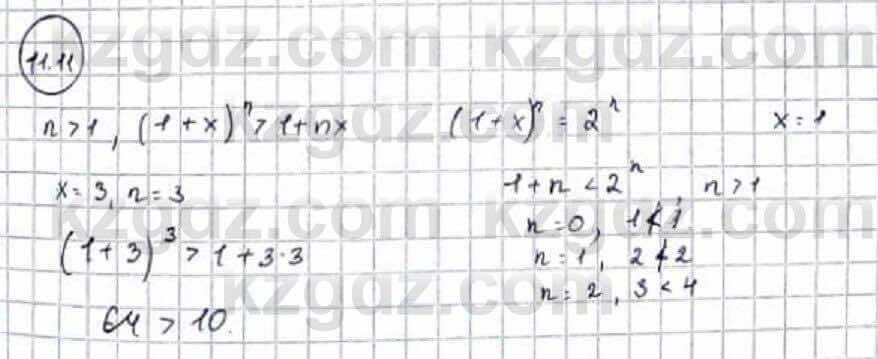 kzgdz.com kzgdz.com
11.11
n > 1, (1 + x)ⁿ > 1 + nx
(1 + x)ⁿ = 2ⁿ
x = 1
kzgdz.com
x = 3, n = 3
(1 + 3)³ > 1 + 3·3
64 > 10.
1 + n < 2ⁿ, n > 1
n = 0, 1 ≮ 1
n = 1, 2 ≮ 2
n = 2, 3 < 4
kzgdz.com kzgdz.com
kzgdz.com